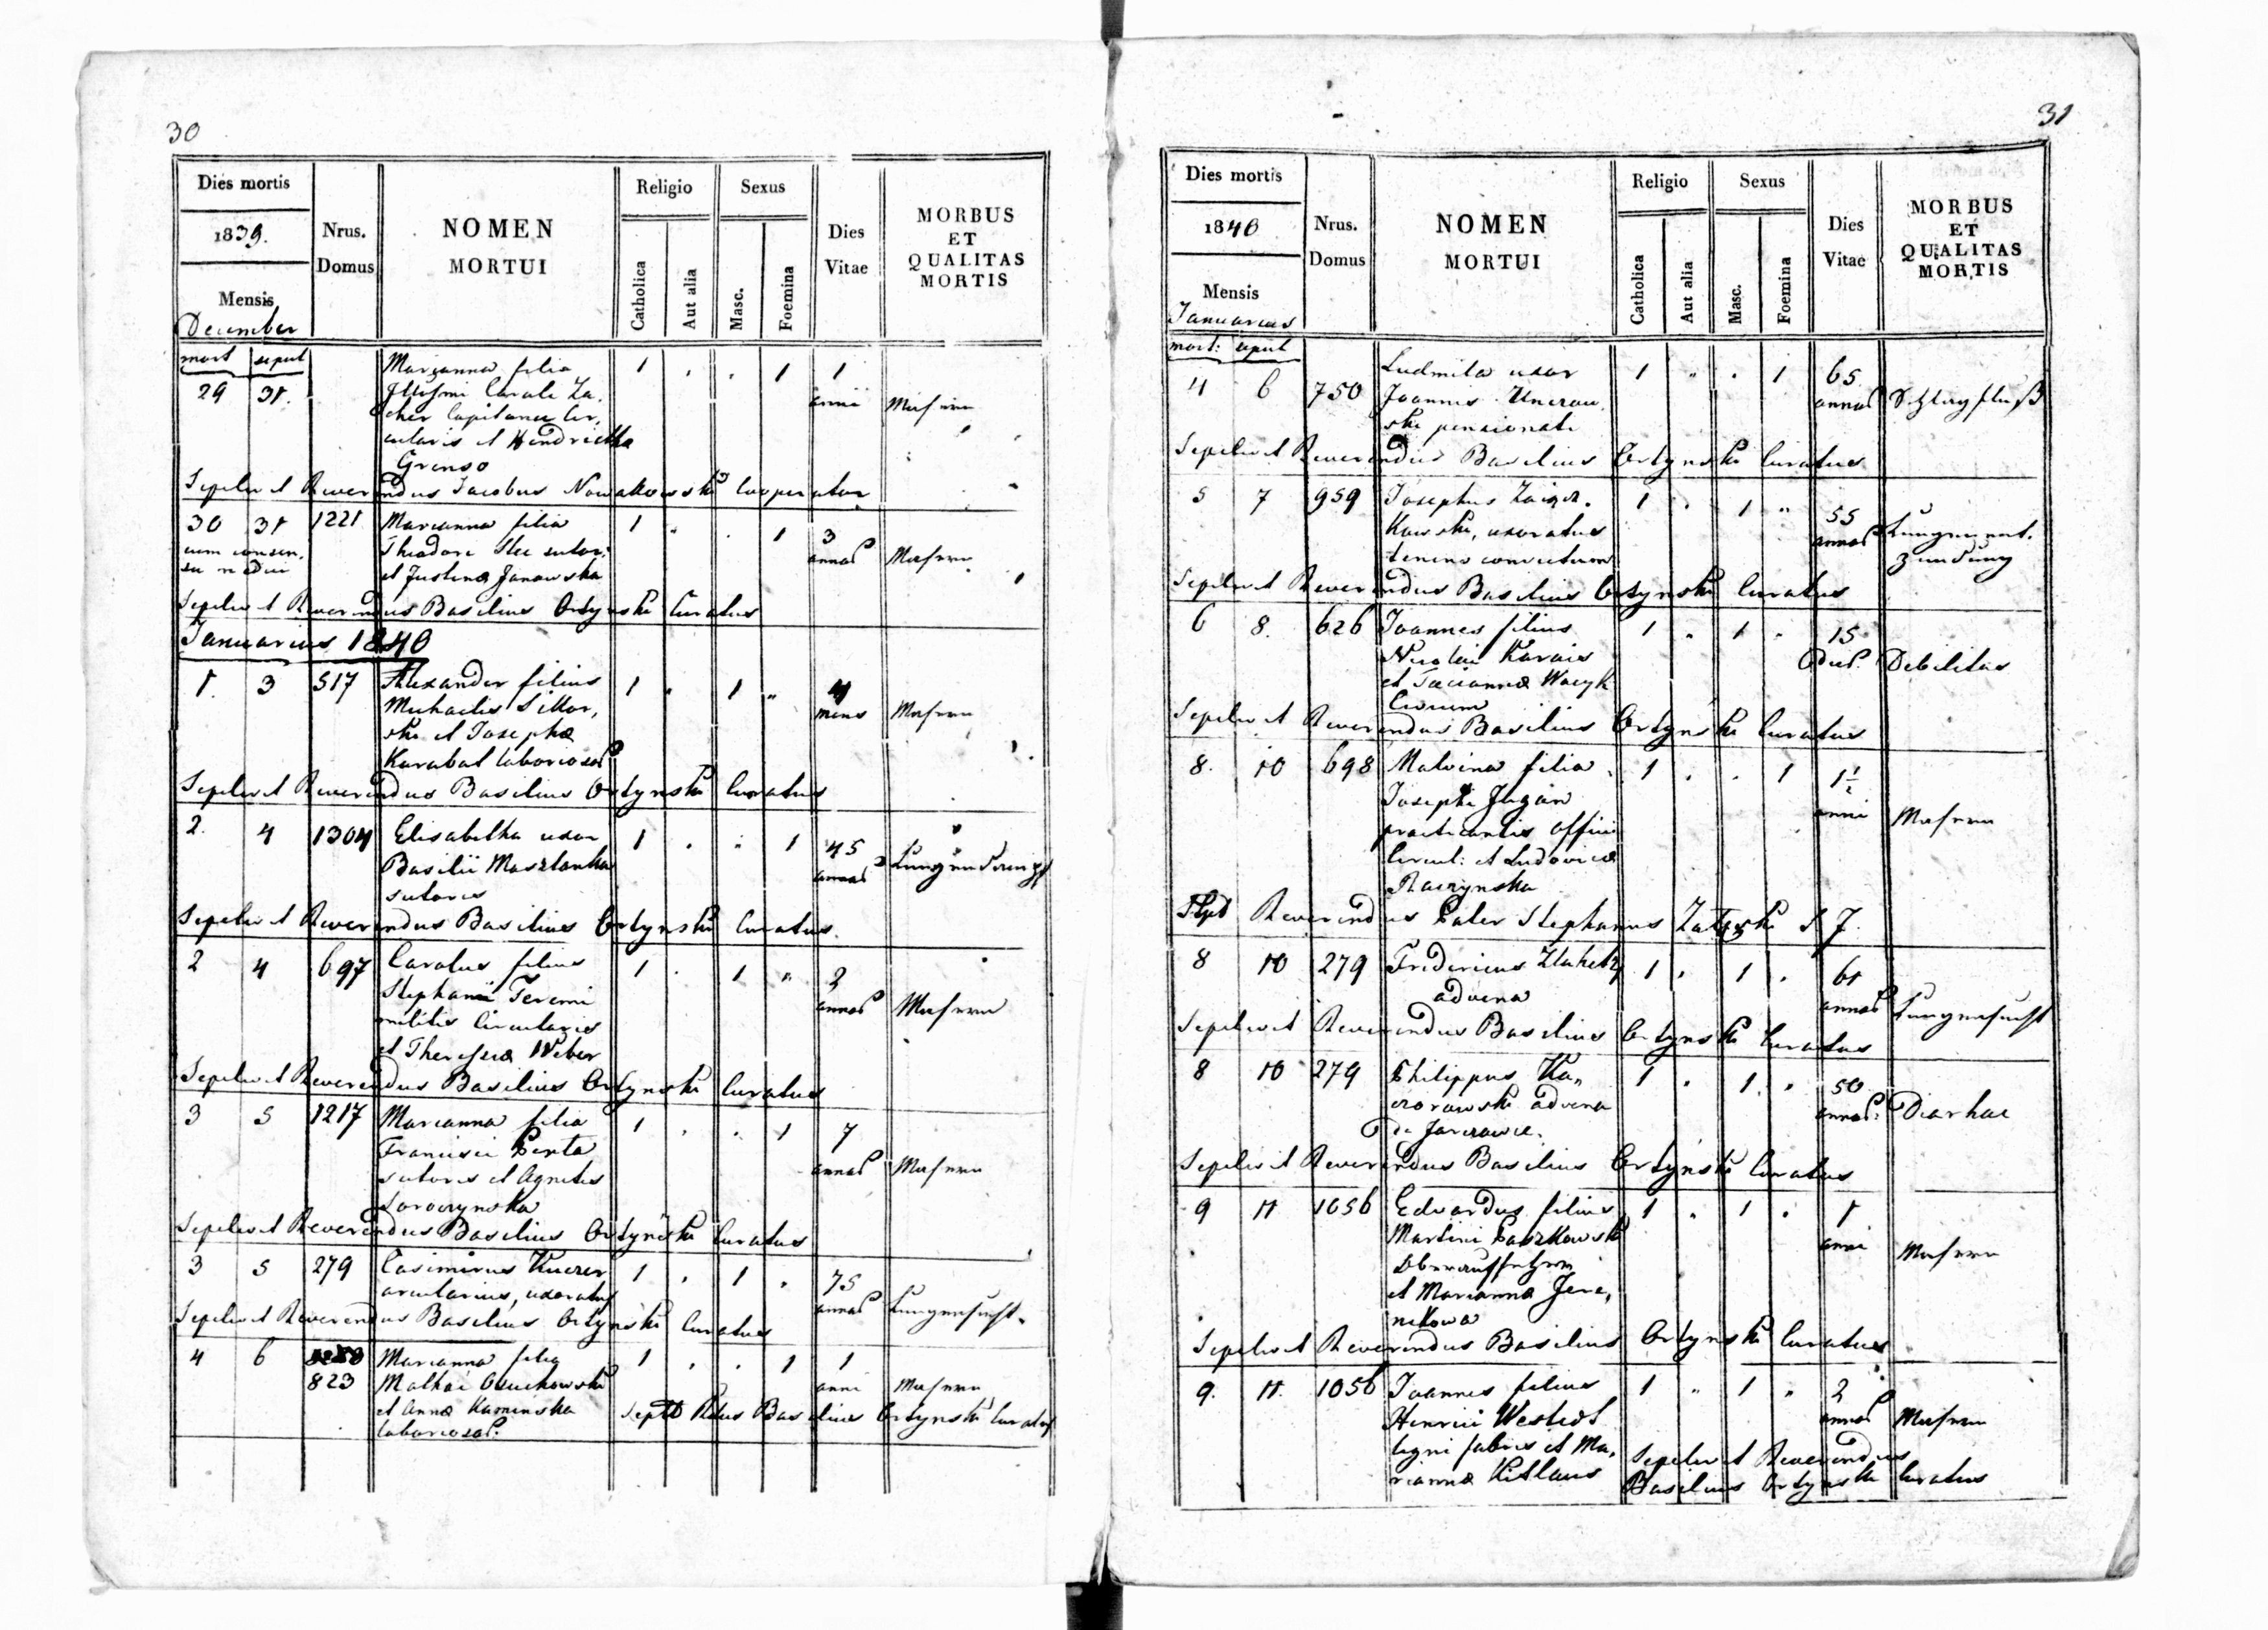 30
Dies mortis
1839.
Mensis
December
Nrus.
Domus
NOMEN
MORTUI
Religio
Catholica
Aut alia
Sexus
Masc.
Foemina
Dies
Vitae
MORBUS
ET
QUALITAS
MORTIS
mort sepult
29 31. Marianna filia 1 . . 1 1
anni Masern
Illusmi Caroli Za,
cher Capitanei Cir,
cularis et Hendrietta
Sepelivit Reverendus Jacobus Nowakowski Cooperator
30 31 1221 Marianna filia 1 . . 1 3
annos Masern
cum consen,
su
Theodori sutor:
et Justina Janowska
Sepelivit Reverendus Basilius Ortynski Curatus
Januarius 1840
1. 3 517 Alexander filius 1 . 1 " 4
mens Masern
Michaelis Sikor,
ski et Josepha
Karabat laborios
Sepelivit Reverendus Basilius Ortynski Curatus
2. 4 1304 Elisabetha uxor 1 . " 1 45
annos
Basilii Maszlanka
sutoris
Sepelivit Reverendus Basilius Ortynski Curatus.
2 4 697 Carolus filius 1 . 1 " 2
annos Masern
Stephani Jeremi
militis Circularis
et Theresia Weber
Sepelivit Reverendus Basilius Ortynski Curatus
3 5 1217 Marianna filia 1 . . 1 7
annos Masern
Francisci Penta
sutoris et Agnetis
Soroczynska
Sepelivit Reverendus Basilius Ortynski Curatus
3 5 279 Casimirus 1 . 1 . 75
annos Lungensucht.
arcularius, uxoratus
Sepelivit Reverendus Basilius Ortynski Curatus
4 6 823 Marianna filia 1 . . 1 1
anni Masern
Mathai
et Anna Kaminska
laborios
Septt Rdus Basilius Ortynski Curatus
31
Dies mortis
1840
Mensis
Januarius
Nrus.
Domus
NOMEN
MORTUI
Religio
Catholica
Aut alia
Sexus
Masc.
Foemina
Dies
Vitae
MORBUS
ET
QUALITAS
MORTIS
mort: sepult
4 6 750 Ludmila uxor 1 " . 1 65
annos Schlagfluß
Joannis
ski pensionati
Sepelivit Reverendus Basilius Ortynski Curatus
5 7 959 Josephus 1 . 1 " 55
annos Lungenent,
zündung
kowski, uxoratus
Sepelivit Reverendus Basilius Ortynski Curatus
6 8. 626 Joannes filius 1 . 1 . 15
dies Debilitas
Nicolai Karais
et Tacianna Wacyk
Civium
Sepelivit Reverendus Basilius Ortynski Curatus
8. 10 698 Malvina filia 1 . . 1 1½
anni Masern
Josephi Jugan
practicantis officii
Circul: et Ludovica
Raczynska
Reverendus Pater Stephanus Załęski S J.
8 10 279 Fridericus 1 . 1 . 61
annos Lungensucht
advena
Sepelivit Reverendus Basilius Ortynski Curatus
8 10 279 Philippus Ka, 1 . 1 . 50
annos: Diarhae
advena
de
Sepelivit Reverendus Basilius Ortynski Curatus
9 11 1056 Edvardus filius 1 . 1 . 1
anni Masern
Martini Paszkowski
Oberaufsehers
et Marianna Jere,
Sepelivit Reverendus Basilius Ortynski Curatus
9. 11. 1056 Joannes filius 1 " 1 " 2
annos Masern
Henrici
ligni fabris et Ma,
rianna
Sepelivit Reverendus
Basilius Ortynski Curatus